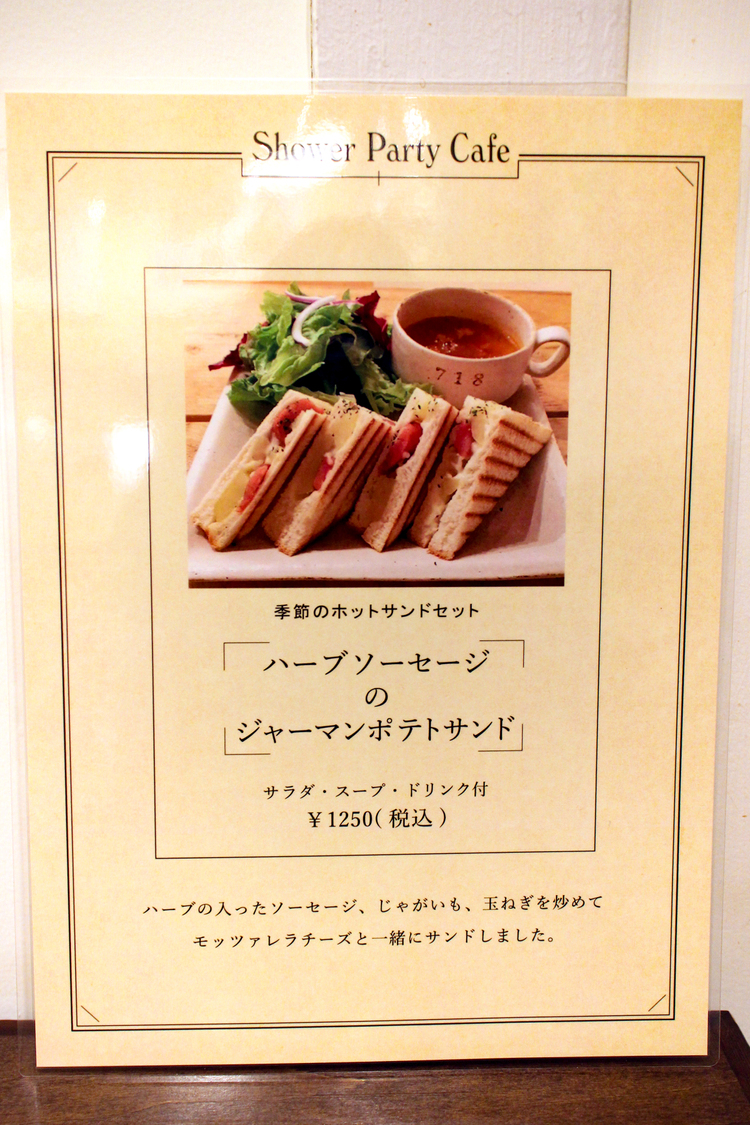 Shower Party Cafe
718
季節のホットサンドセット
ハーブソーセージ
の
ジャーマンポテトサンド
サラダ・スープ・ドリンク付
¥1250(税込)
ハーブの入ったソーセージ、じゃがいも、玉ねぎを炒めて
モッツァレラチーズと一緒にサンドしました。